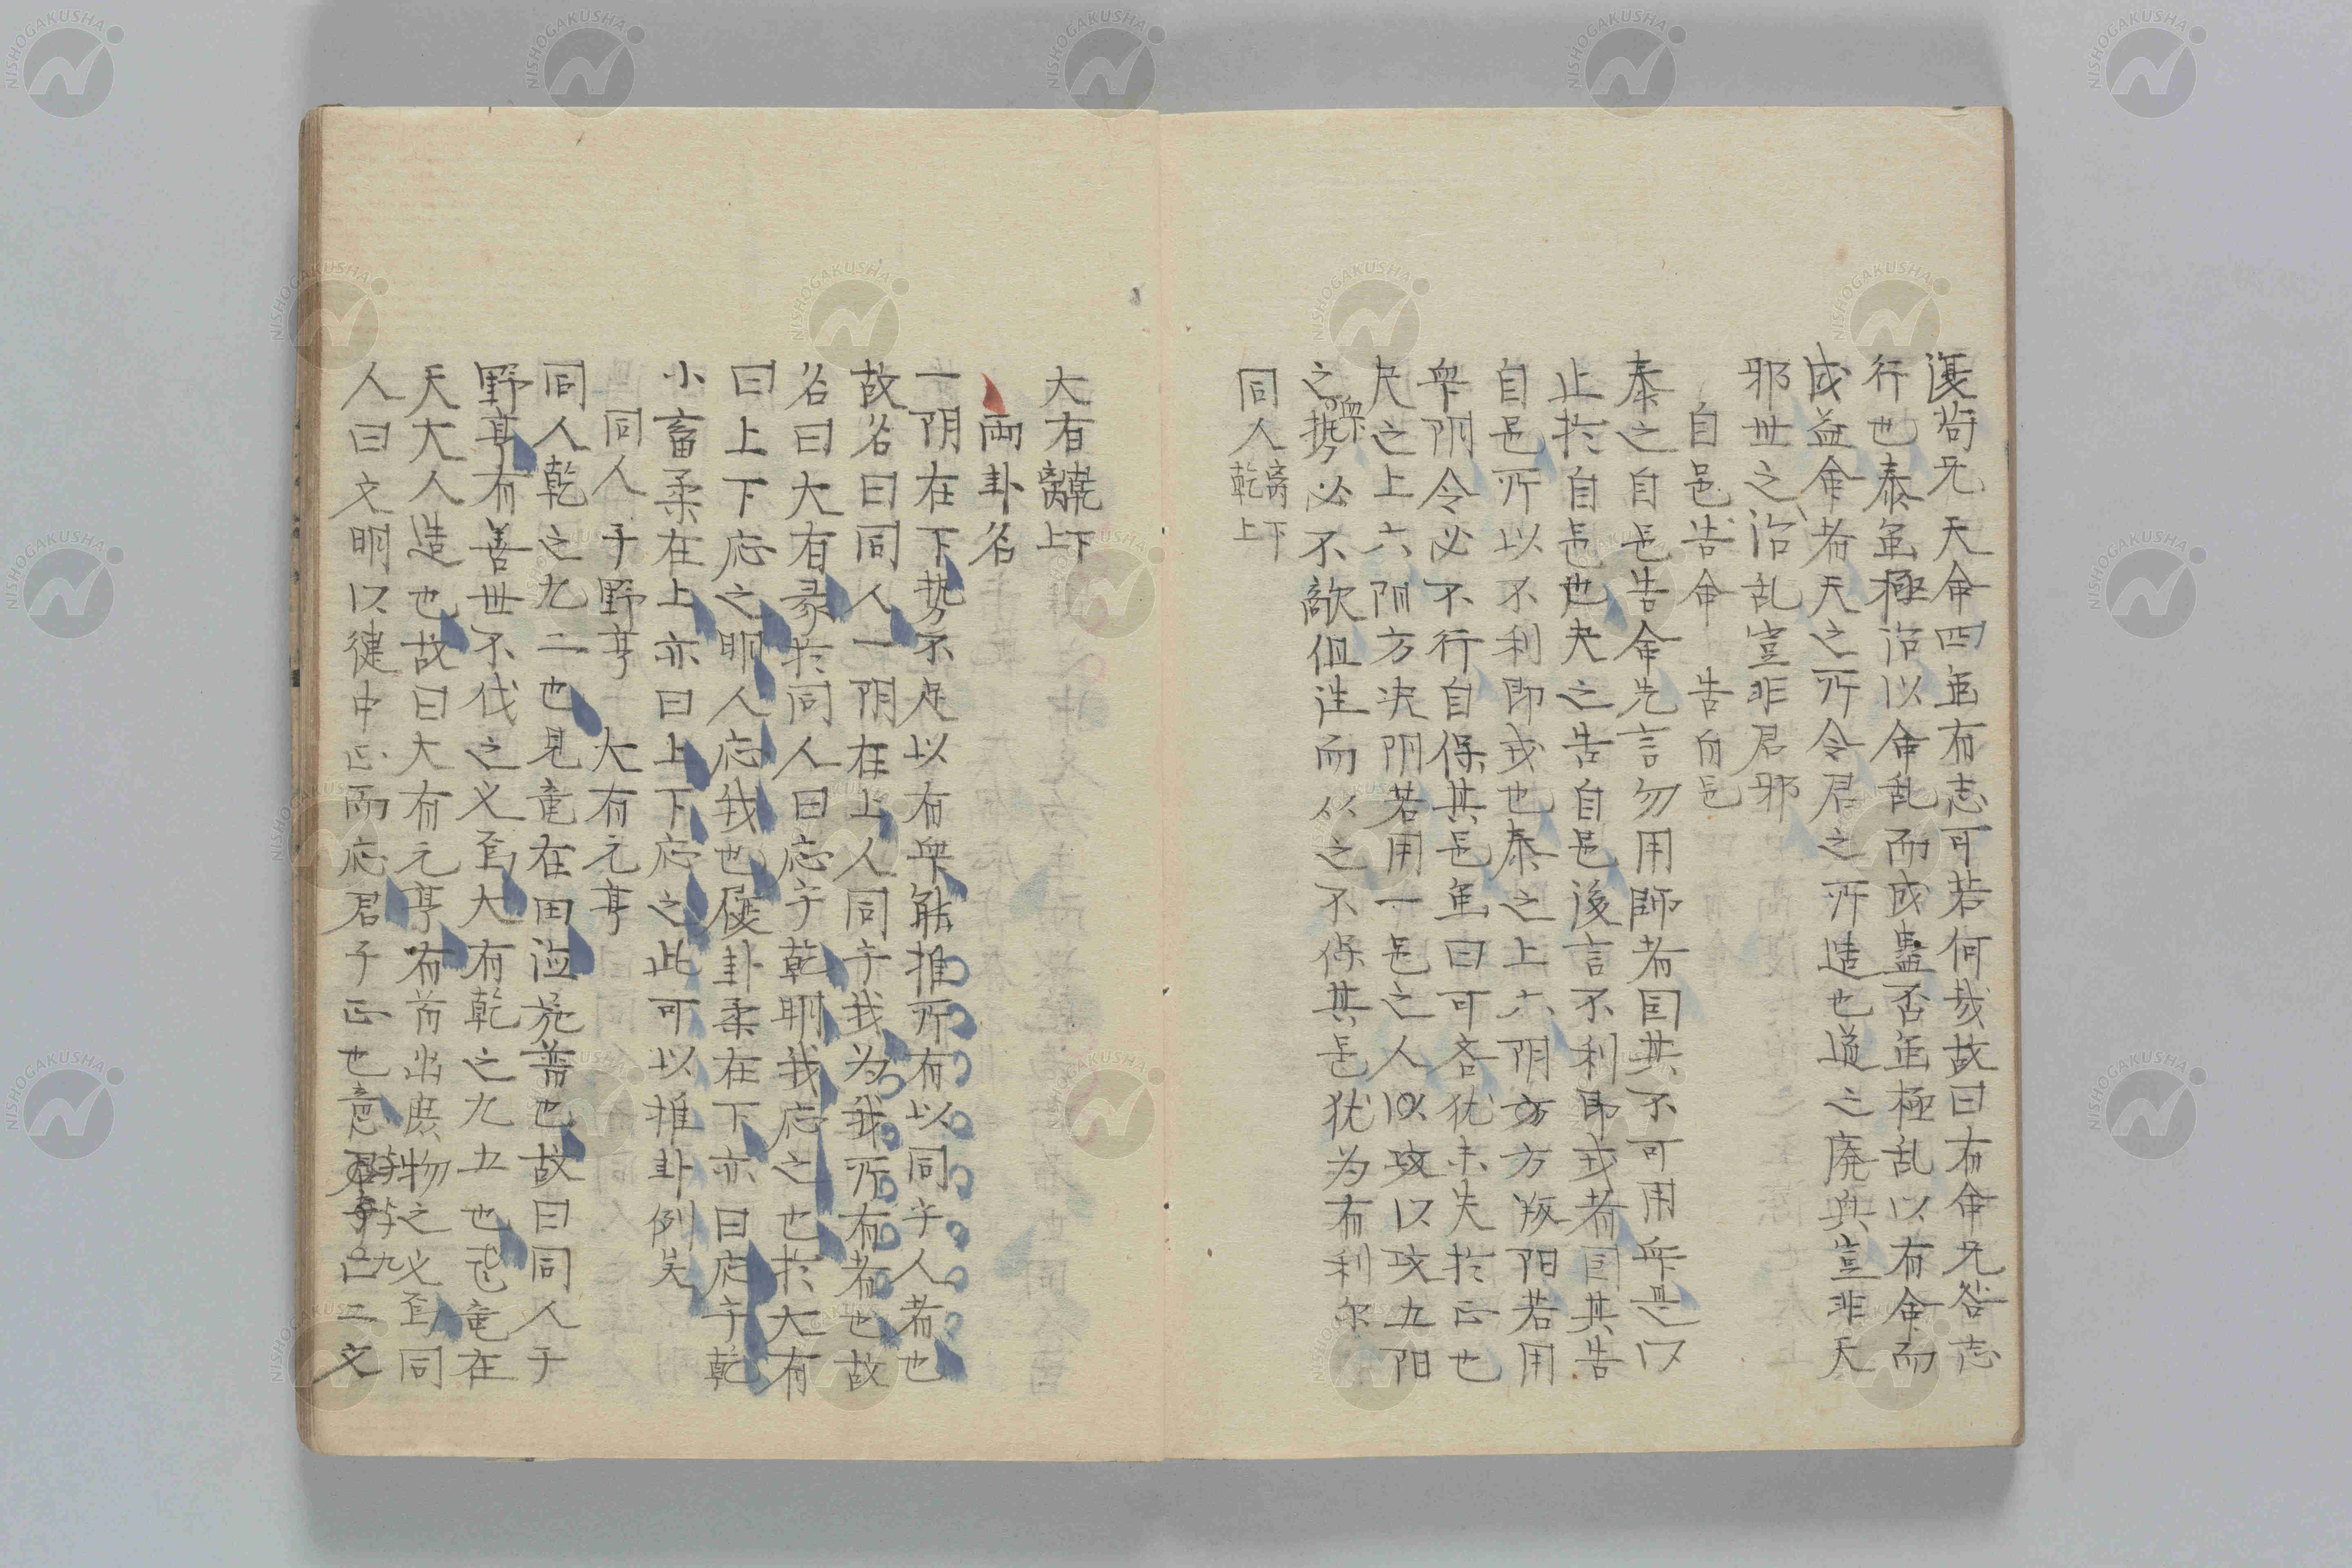 復苟无天命四虽有志可若何哉故曰有命无咎志
行也泰虽極治以命乱而成蠱否虽極乱以有命而
成益命者天之所令君之所造也道之廃興豈非天
邪世之治乱豈非君邪
自邑告命　告自邑
泰之自邑告命先言勿用師者国其不可用衆是以
止於自邑也夬之告自邑後言不利即戎者国其告
自邑所以不利即戎也泰之上六阴方方叛阳若用
衆阴令必不行自保其邑虽曰可吝犹未失於正也
夬之上六阴方决阴若用一邑之人以攻以攻五阳
之衆勢必不敵但往而从之不保其邑犹为有利尔
同人離下乾上
大有乾下離上
両卦名
一阴在下势不足以有衆能推所有以同乎人者也
故名曰同人一阴在上人同乎我为我所有者也故
名曰大有彖於同人曰応乎乾明我応之也於大有
曰上下応之明人応我也履卦柔在下亦曰応乎乾
小畜柔在上亦曰上下応之此可以推卦例矣
同人于野亨　大有元亨
同人乾之九二也見竜在田徳施普也故曰同人于
野亨有善世不伐之义至大有乾之九五也飞竜在
天大人造也故曰大有元亨有首出庶物之义至同
人曰文明以健中正而応君子正也意君子已二文